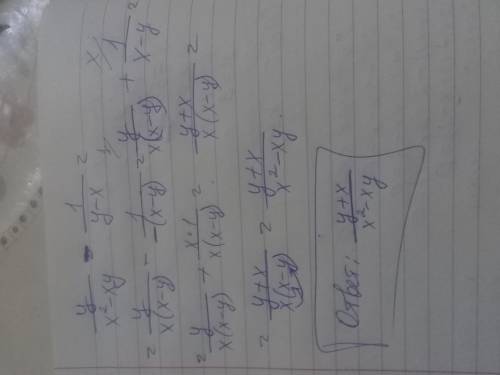 y/(x²-xy) - 1/(y-x) =
= y/(x(x-y)) - 1/(-(x-y)) = y/(x(x-y)) + 1/(x-y) =
= y/(x(x-y)) + x·1/(x(x-y)) = y+x/(x(x-y)) =
= y+x/(x(x-y)) = y+x/(x²-xy).
Ответ: y+x/(x²-xy)